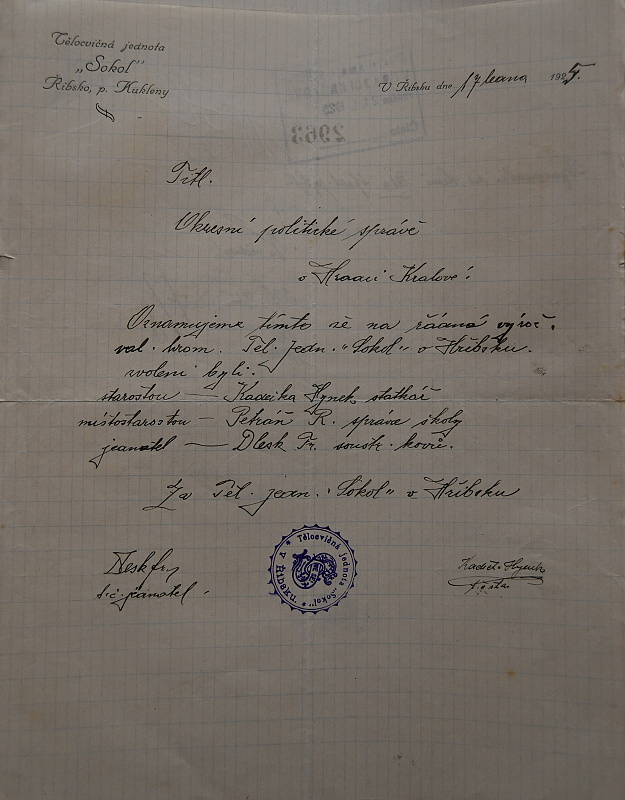 Tělocvičná jednota
„Sokol"
Řibsko, p. Kukleny
V Řibsku dne 17 ledna 1925.
2963
Titl.
Okresní politické správě
v Hradci Králové!
Oznamujeme tímto že na řádná výroč.
val. hrom. Těl. Jedn. "Sokol" v Hřibsku.
zvoleni byli:
starostou — Kadeřka Hynek statkář
místostarostou — Petráň R. správce školy
jednatel — Dlesk Fr. soustr. kovů.
Za Těl. jedn. "Sokol" v Hřibsku
t. č. jednatel.
* Tělocvičná jednota „Sokol" * v Řibsku.